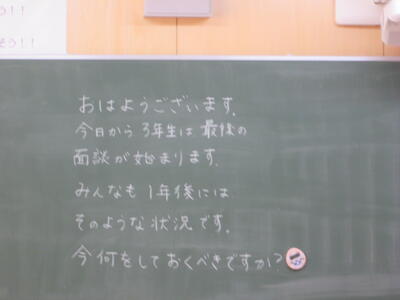 ！！
そう！！
おはようございます。
今日から3年生は最後の
面談が始まります。
みんなも1年後には
そのような状況です。
今何をしておくべきですか？